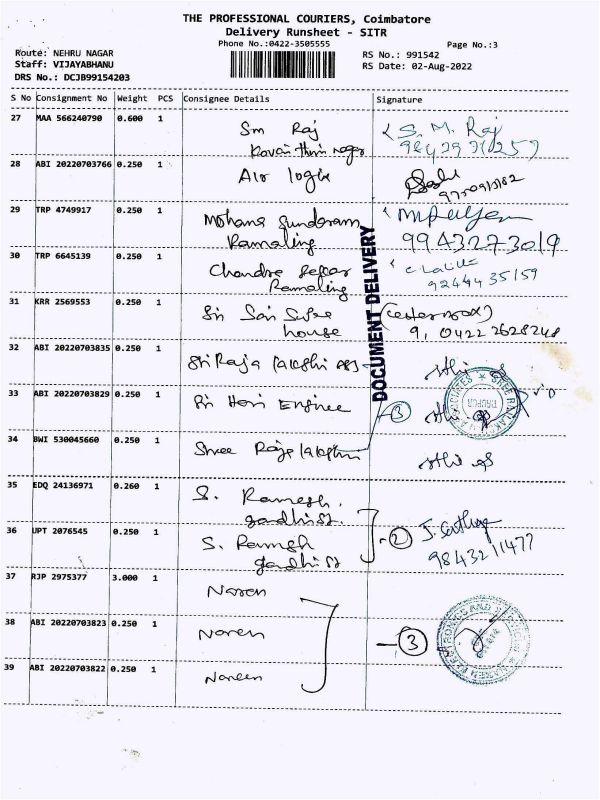 THE PROFESSIONAL COURIERS, Coimbatore
Delivery Runsheet - SITR
Phone No.:0422-3505555
Page No.:3
Route: NEHRU NAGAR
RS No.: 991542
Staff: VIJAYABHANU
RS Date: 02-Aug-2022
DRS No.: DCJB99154203
S No Consignment No Weight PCS Consignee Details Signature
27 MAA 566240790 0.600 1 Sm Raj S. M. Raj
Kovai thiru nagar
28 ABI 20220703766 0.250 1 Air logix
29 TRP 4749917 0.250 1 Mohana Sundaram
Ramaling 9943273019
30 TRP 6645139 0.250 1 Chandra Sekar
Ramaling 9244435159
31 KRR 2569553 0.250 1 Sri Sai
house 9, 0422 2628248
DOCUMENT DELIVERY
32 ABI 20220703835 0.250 1 Sri Raja
33 ABI 20220703829 0.250 1 Sri Hari Enginee 3
34 BWI 530045660 0.250 1 Shree Raja
35 EDQ 24136971 0.260 1 S. Ramesh.
gandhi st.
36 UPT 2076545 0.250 1 S. Ramesh 2 J. Sathya
gandhi st 9843211477
37 RJP 2975377 3.000 1 Naren
38 ABI 20220703823 0.250 1 Naren 3
39 ABI 20220703822 0.250 1 Nareen